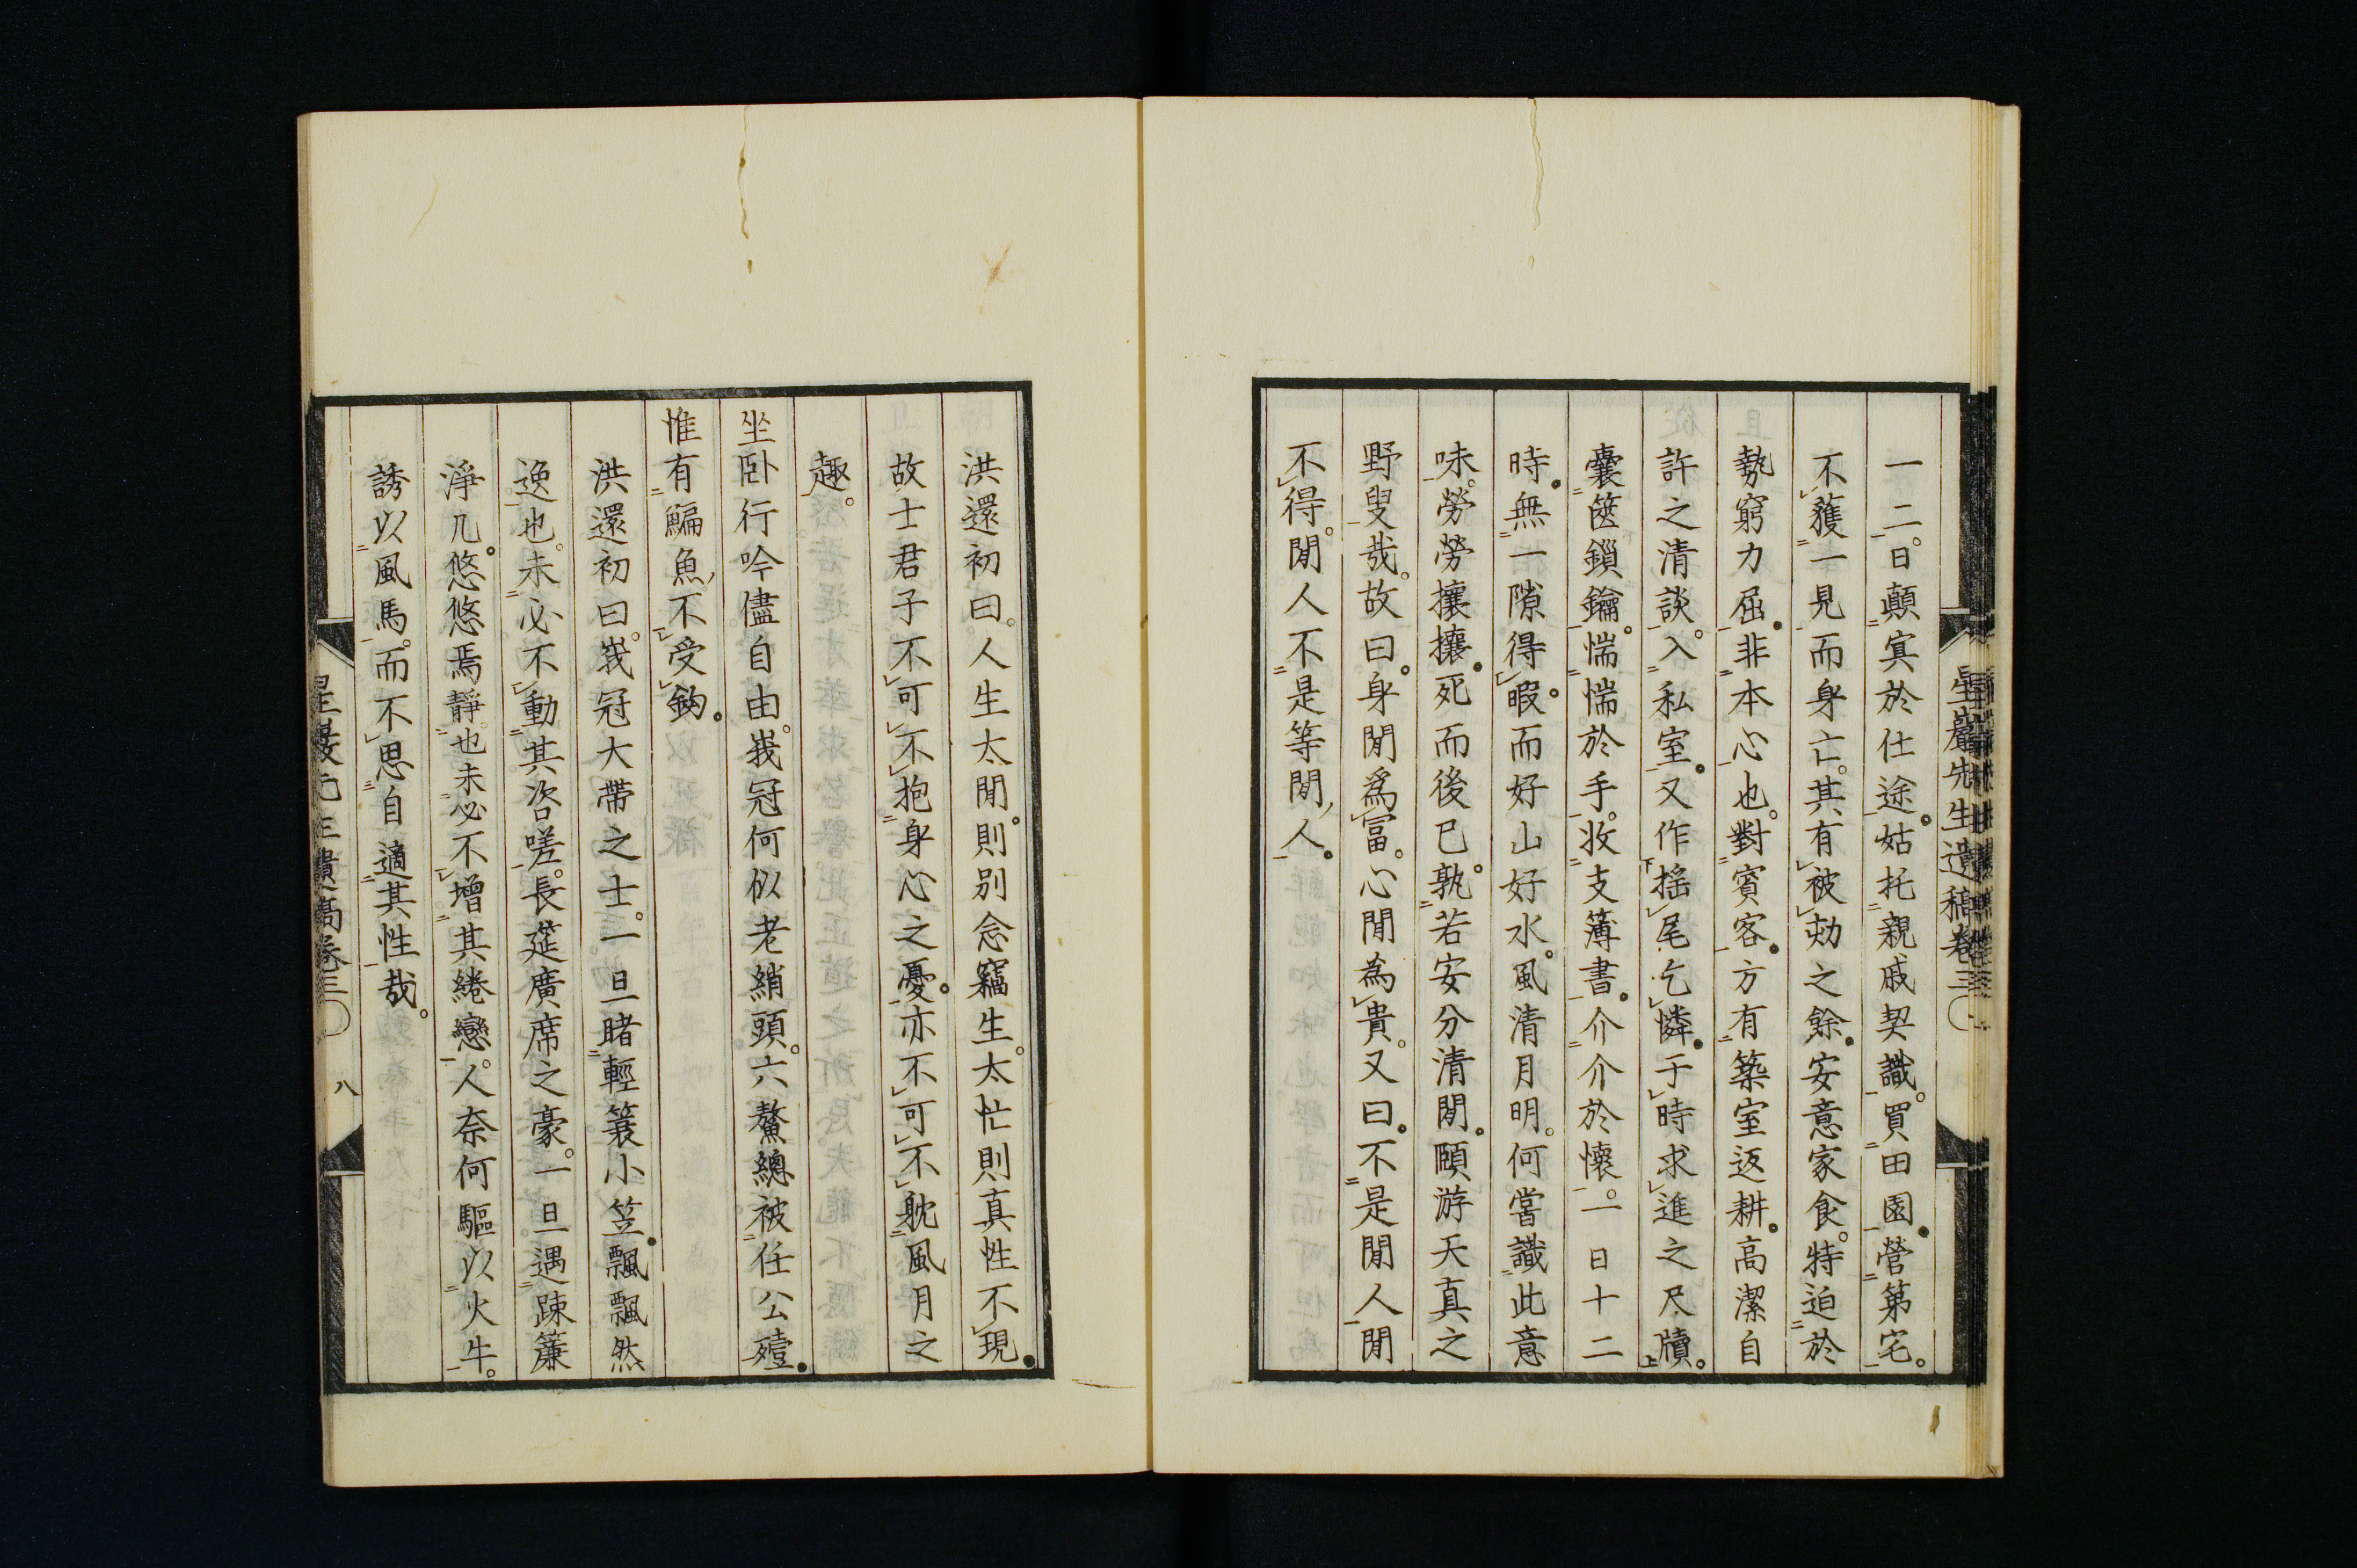 一二。日顛冥於仕途。姑托親戚契識。買田園。營第宅。
不獲一見而身亡。其有被劾之餘。安意家食。特迫於
勢窮力屈。非本心也。對賓客。方有築室返耕。高潔自
許之清談。入私室。又作搖尾乞憐。于時求進之尺牘。
囊篋鎖鑰。惴惴於手。收支簿書。介介於懷。一日十二
時。無一隙得暇。而好山好水。風清月明。何嘗識此意
味。勞勞攘攘。死而後已。孰若安分清閒。頤游天真之
野叟哉。故曰。身閒爲富。心閒為貴。又曰。不是閒人閒
不得。閒人不是等閒人。
星巖先生遺稿卷三
洪還初曰。人生太閒。則別念竊生。太忙則真性不現。
故士君子不可不抱身心之憂。亦不可不躭風月之
趣。
坐臥行吟儘自由。峩冠何似老綃頭。六鰲總被任公殪。
惟有鯿魚不受鈎。
洪還初曰。峩冠大帶之士。一旦睹輕簑小笠。飄飄然
逸也。未必不動其咨嗟。長筵廣席之豪。一旦遇踈簾
淨几。悠悠焉靜。也未必不增其綣戀。人奈何驅以火牛。
誘以風馬。而不思自適其性哉。
八